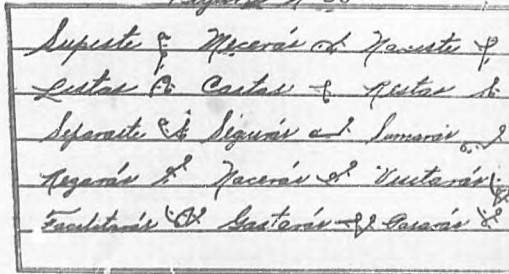 Supiste Mecerás Naciste
Listas Castas Restas
Separaste Seguirás Sumarás
Negarás Nacerás Visitarás
Facilitarás Gastarás Pasarás